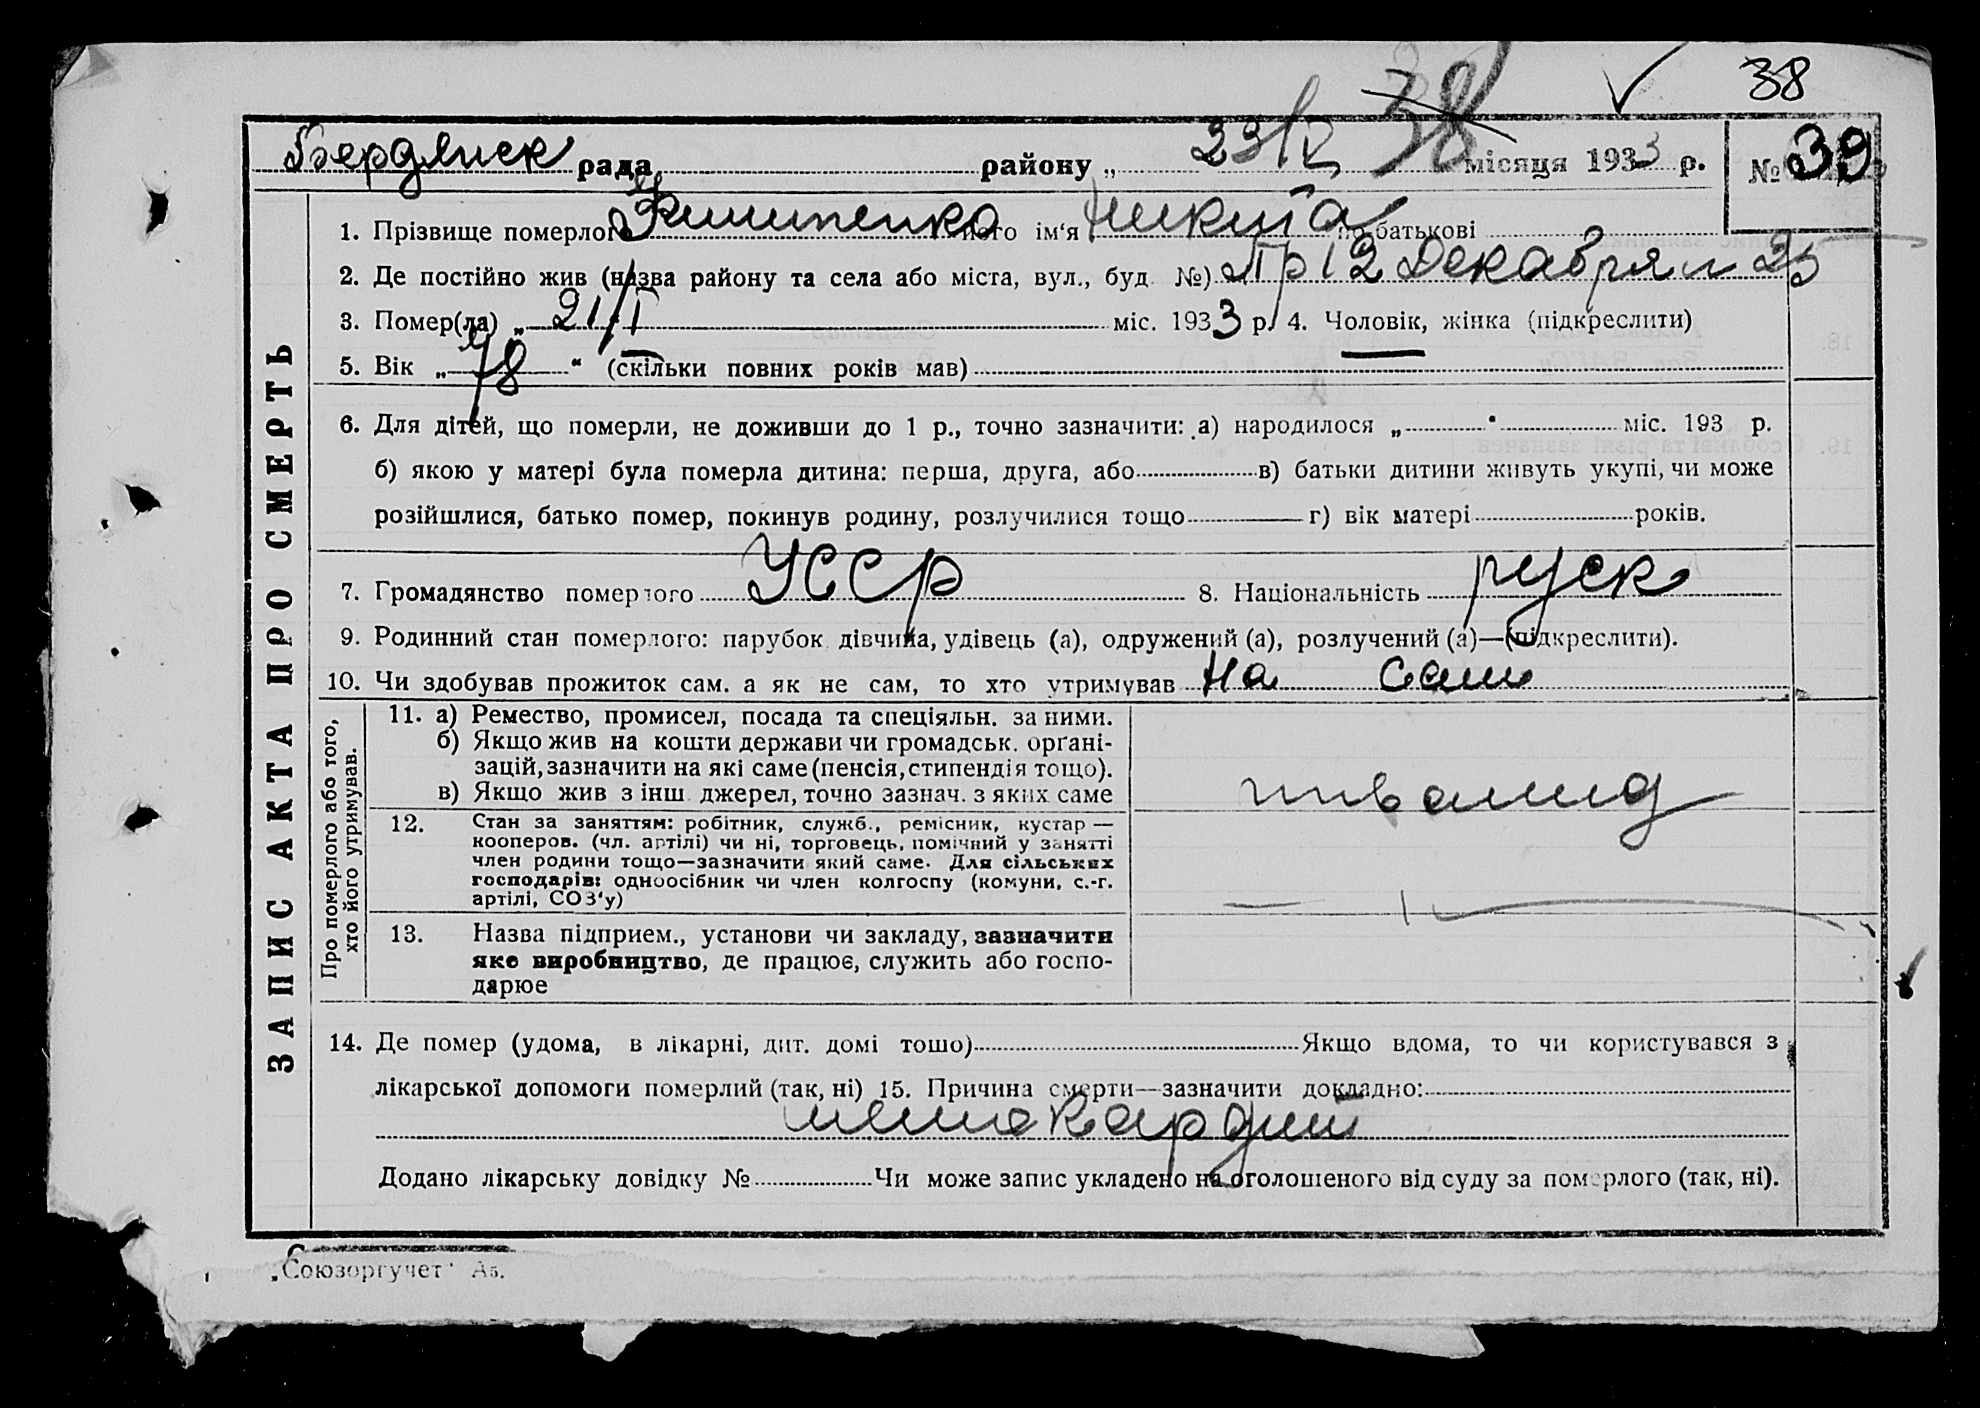 38
38
Бердянск рада району „ 23/I місяця 1933 р. № 39
1. Прізвище померлого його ім‘я Никита по батькові
2. Де постійно жив (назва району та села або міста, вул., буд. №) Пр 12 Декабря 25
3. Помер(ла) „ 21/I міс. 1933 р. 4. Чоловік, жінка (підкреслити)
5. Вік „ 78 “ (скільки повних років мав)
6. Для дітей, що померли, не доживши до 1 р., точно зазначити: а) народилося „ “ міс. 193 р.
б) якою у матері була померла дитина: перша, друга, або в) батьки дитини живуть укупі, чи може
розійшлися, батько помер, покинув родину, розлучилися тощо г) вік матері років.
7. Громадянство померлого УССР 8. Національність руск
9. Родинний стан померлого: парубок, дівчина, удівець (а), одружений (а), розлучений (а)—(підкреслити).
10. Чи здобував прожиток сам, а як не сам, то хто утримував На сам
11. а) Ремество, промисел, посада та спеціяльн. за ними.
б) Якщо жив на кошти держави чи громадськ. орґані-
зацій, зазначити на які саме (пенсія, стипендія тощо).
в) Якщо жив з інш. джерел, точно зазнач. з яких саме
инвалид
12. Стан за заняттям: робітник, служб., ремісник, кустар —
кооперов. (чл. артілі) чи ні, торговець, помічний у занятті
член родини тощо—зазначити який саме. Для сільських
господарів: одноосібник чи член колгоспу (комуни, с.-г.
артілі, СОЗ‘у)
13. Назва підприєм., установи чи закладу, зазначити
яке виробництво, де працює, служить або госпо-
дарює
14. Де помер (удома, в лікарні, дит. домі тощо) Якщо вдома, то чи користувався з
лікарської допомоги померлий (так, ні) 15. Причина смерти—зазначити докладно:
Додано лікарську довідку № Чи може запис укладено на оголошеного від суду за померлого (так, ні).
ЗАПИС АКТА ПРО СМЕРТЬ
Про померлого або того,
хто його утримував.
„Союзоргучет“ А5.